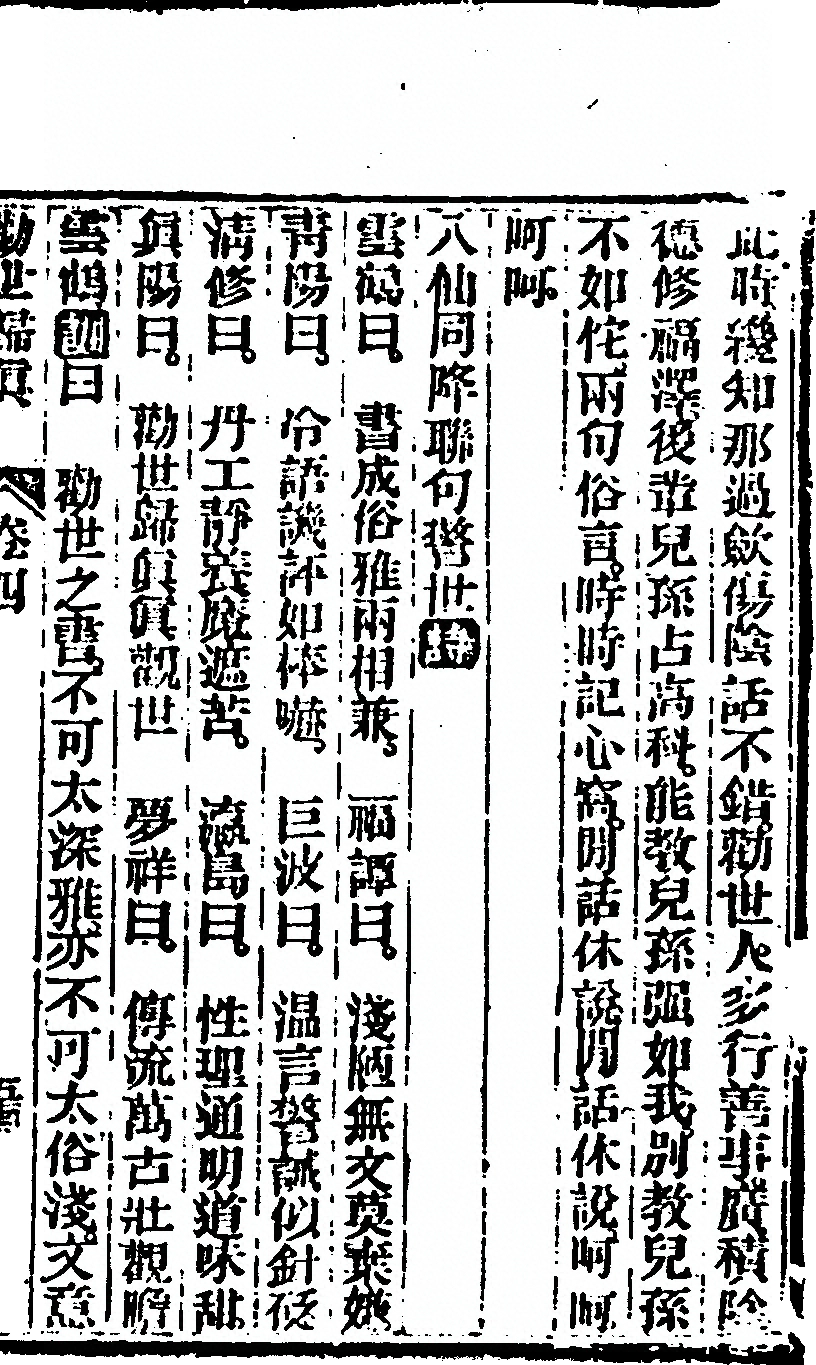 此時纔知那過歙傷陰話不錯勸世人多行善事廣積陰
德修福澤後輩兒孫占高科能教兒孫强如我別教兒孫
不如侘兩句俗言時時記心窩閒話休說閒話休說呵呵
呵呵
八仙同降聯句警世
雲鶴曰 書成俗雅兩相兼 福譚曰 淺陋無文莫棄嫌
青陽曰 冷語譏評如棒喝 巨波曰 温言警誡似針砭
淸修曰 丹工靜養魔遮苦 瀛島曰 性理通明道味甜
眞陽曰 勸世歸眞眞觀世 夢祥曰 傳流萬古壯觀瞻
雲鶴訓曰 勸世之書不可太深雅亦不可太俗淺文意
勸世歸眞 卷四